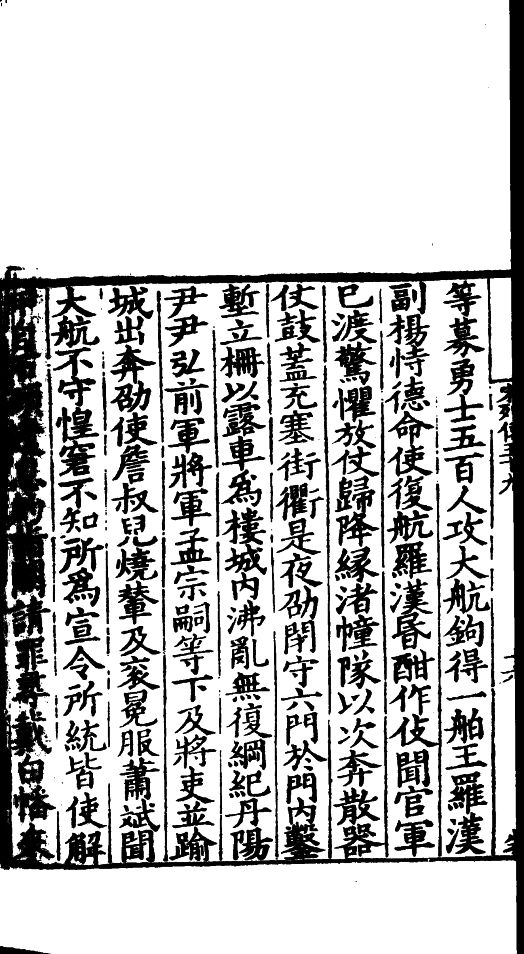 等募勇士五百人攻大航鉤得一舶王羅漢
副楊恃德命使復航羅漢昏酣作伎聞官軍
已渡驚懼放仗歸降縁渚幢隊以次奔散器
仗鼓蓋充塞街衢是夜劭閉守六門於門内鑿
塹立柵以露車爲樓城内沸亂無復綱紀丹陽
尹尹弘前軍將軍孟宗嗣等下及將吏並踰
城出奔劭使詹叔兒燒輦及衮冕服蕭斌聞
大航不守惶窘不知所爲宣令所統皆使解
請罪尋戴白幡來